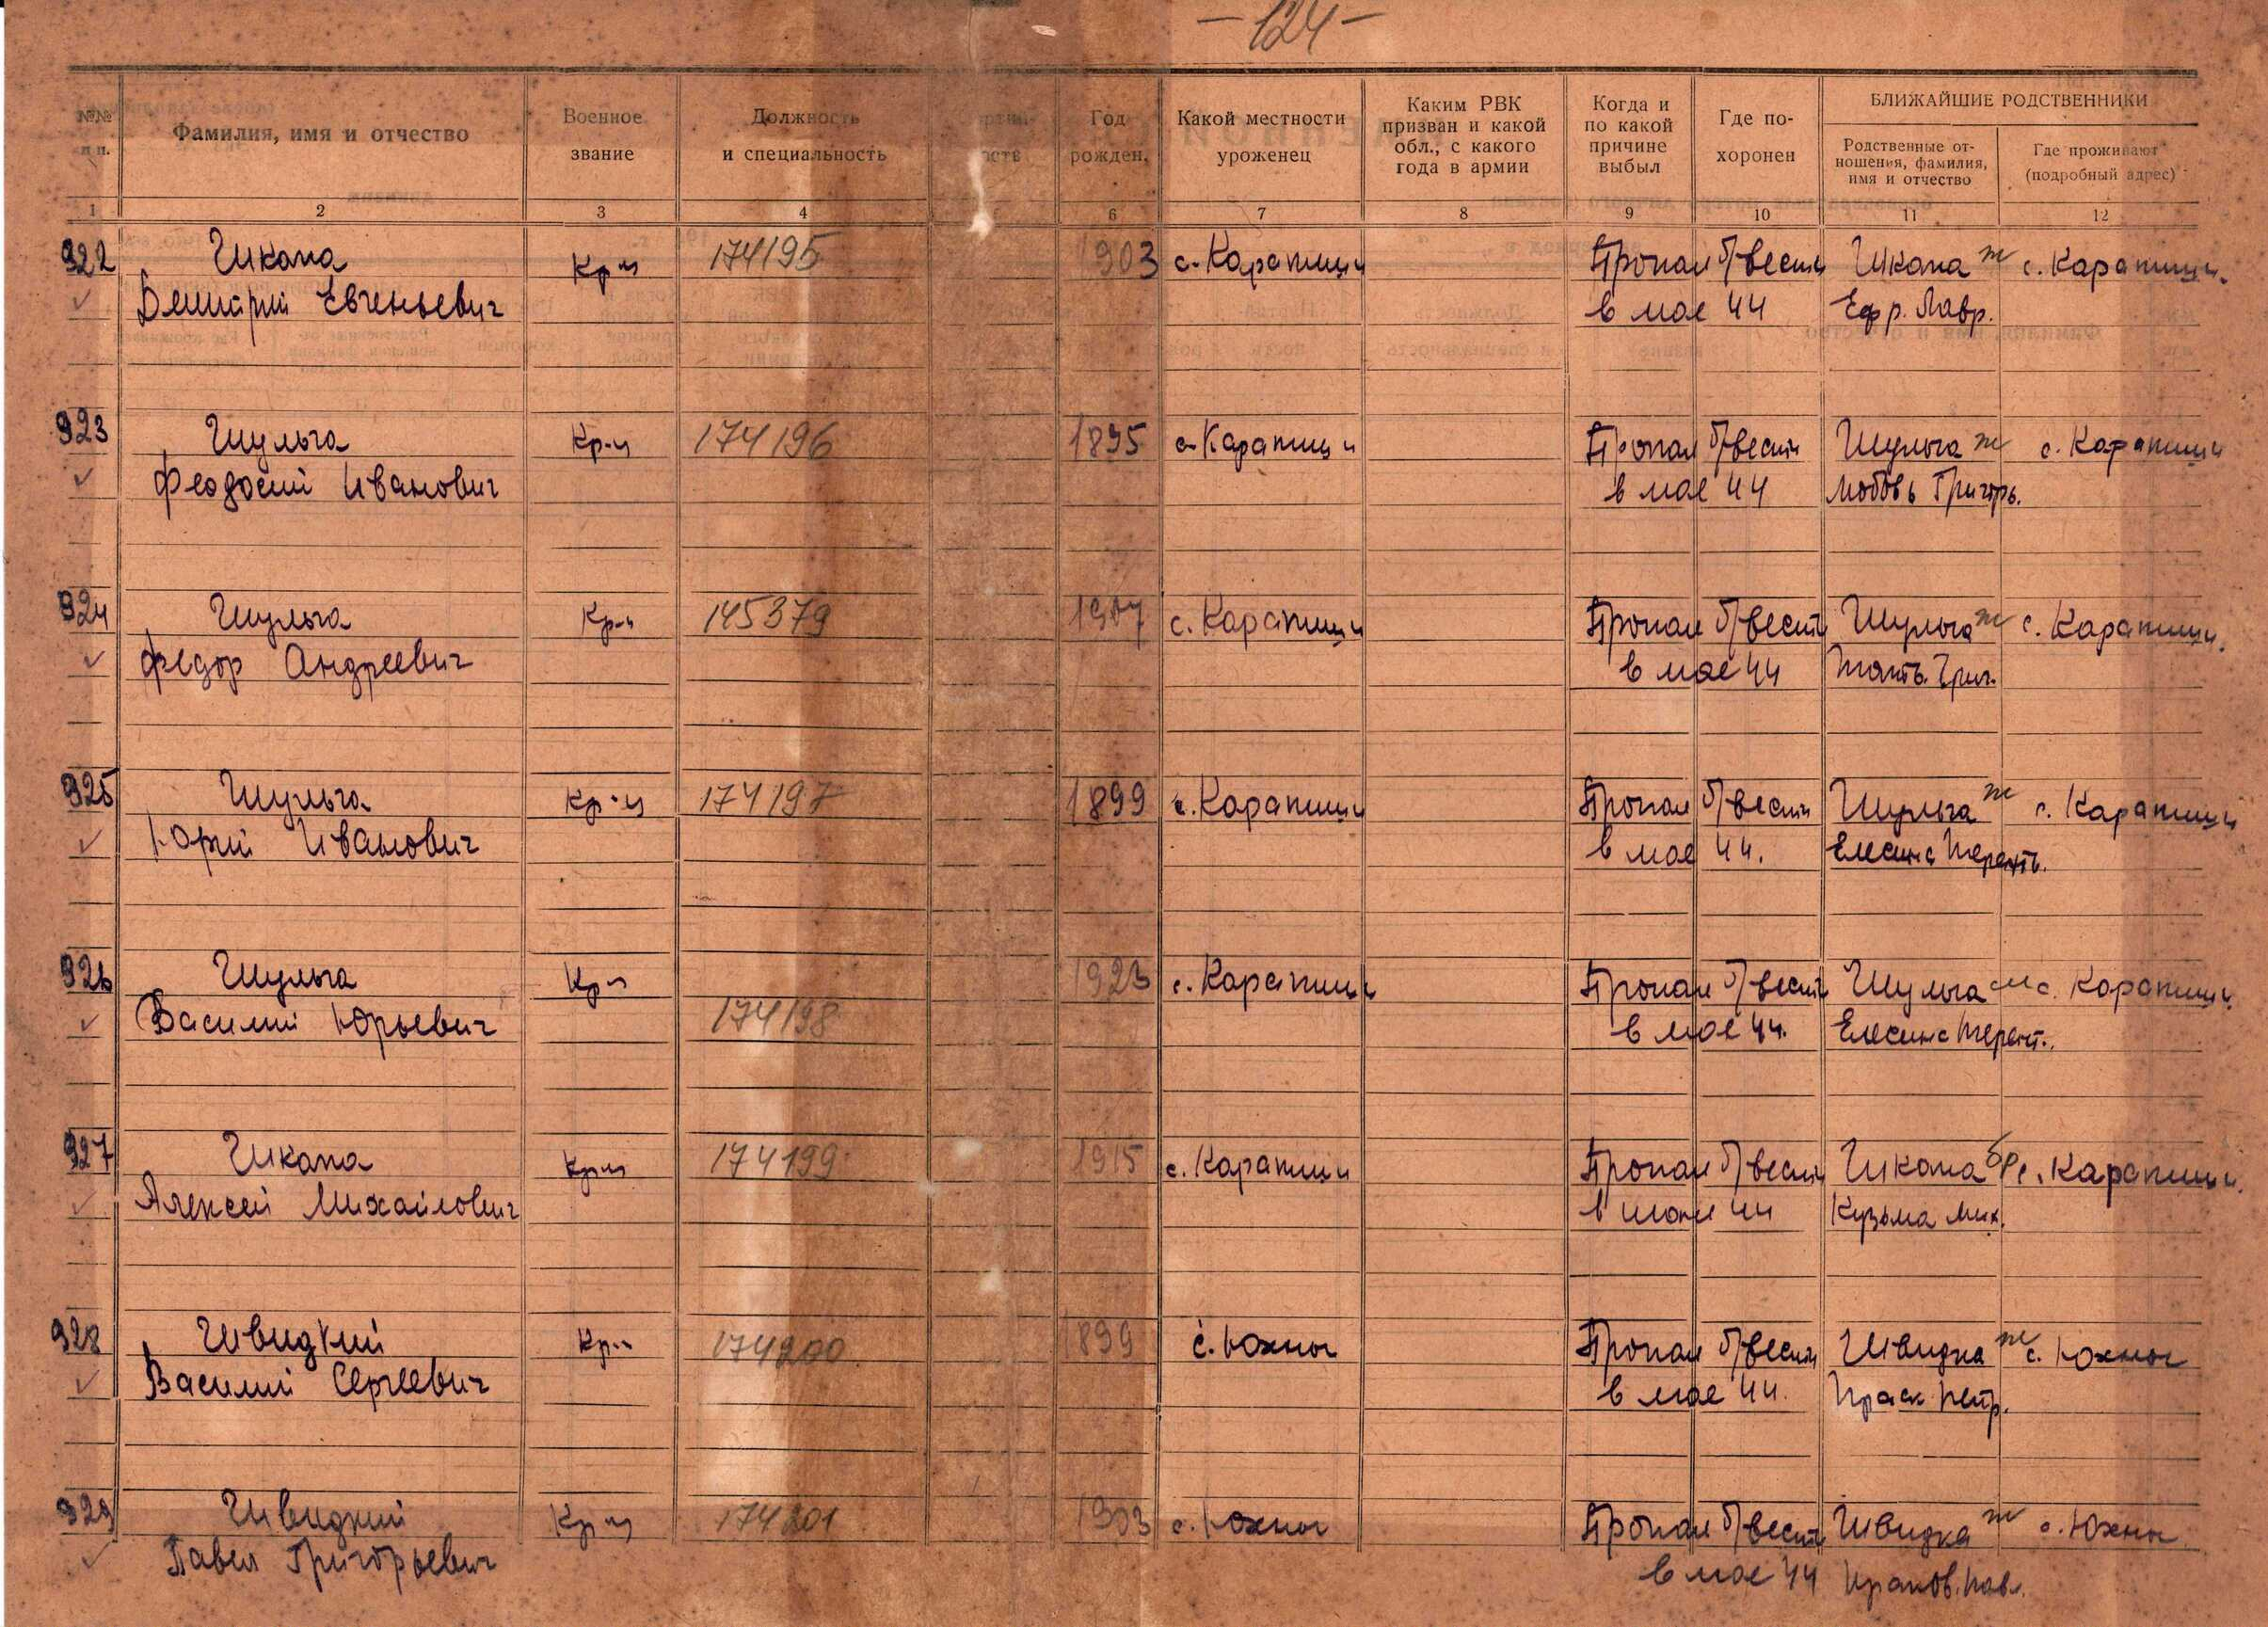 - 124 -
№№ п п.
Фамилия, имя и отчество
Военное звание
Должность и специальность
Год рожден.
Какой местности уроженец
Каким РВК призван и какой обл., с какого года в армии
Когда и по какой причине выбыл
Где похоронен
БЛИЖАЙШИЕ РОДСТВЕННИКИ
Родственные отношения, фамилия, имя и отчество
Где проживают (подробный адрес)
1 2 3 4 6 7 8 9 10 11 12
922 Шкапа Кр-ц 174195 1903 с. Карапиши Пропал б/вести Шкапа ж с. Карапиши.
Дмитрий Евгеньевич в мае 44 Ефр. Лавр.
923 Шульга Кр-ц 174196 1895 с. Карапиши Пропал б/вести Шульга ж с. Карапиши
Феодосий Иванович в мае 44 Любовь Григорь.
924 Шульга Кр-ц 145379 1907 с. Карапиши Пропал б/вести Шульга ж с. Карапиши.
Федор Андреевич в мае 44 Григ.
925 Шульга Кр-ц 174197 1899 с. Карапиши Пропал б/вести Шульга ж с. Карапиши
Юрий Иванович в мае 44.
926 Шульга Кр-ц 1923 с. Карапиши Пропал б/вести Шульга с. Карапиши
Василий Юрьевич 174198 в мае 44.
927 Шкапа Кр-ц 174199 1915 с. Карапиши Пропал б/вести Шкапа бр с. Карапиши.
Алексей Михайлович в июне 44 Кузьма Мих.
928 Швидкий Кр-ц 174200 1899 с. Юхны Пропал б/вести Швидка ж с. Юхны
Василий Сергеевич в мае 44. Праск. Петр.
929 Швидкий Кр-ц 174201 1903 с. Юхны Пропал б/вести Швидка ж с. Юхны
Павел Григорьевич в мае 44